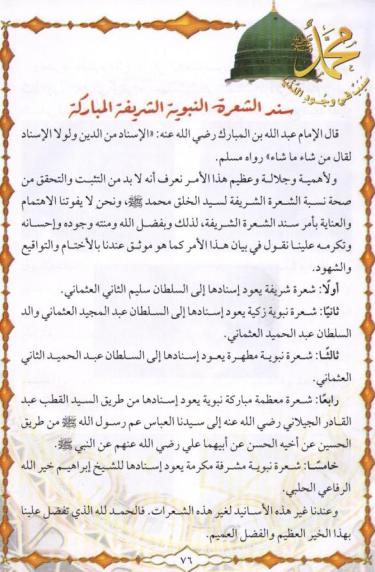 محمد ﷺ
سند الشعرة النبوية الشريفة المباركة
قال الإمام عبد الله بن المبارك رضي الله عنه: «الإسناد من الدين ولولا الإسناد
لقال من شاء ما شاء» رواه مسلم.
ولأهمية وجلالة وعظيم هذا الأمر نعرف أنه لا بد من التثبت والتحقق من
صحة نسبة الشعرة الشريفة لسيد الخلق محمد ﷺ، ونحن لا يفوتنا الاهتمام
والعناية بأمر سند الشعرة الشريفة، لذلك وبفضل الله ومنته وجوده وإحسانه
وتكرمه علينا نقول في بيان هذا الأمر كما هو موثق عندنا بالأختام والتواقيع
والشهود.
أولًا: شعرة شريفة يعود إسنادها إلى السلطان سليم الثاني العثماني.
ثانيًا: شعرة نبوية زكية يعود إسنادها إلى السلطان عبد المجيد العثماني والد
السلطان عبد الحميد العثماني.
ثالثًا: شعرة نبوية مطهرة يعود إسنادها إلى السلطان عبد الحميد الثاني
العثماني.
رابعًا: شعرة معظمة مباركة نبوية يعود إسنادها من طريق السيد القطب عبد
القادر الجيلاني رضي الله عنه إلى سيدنا العباس عم رسول الله ﷺ من طريق
الحسين عن أخيه الحسن عن أبيهما علي رضي الله عنهم عن النبي ﷺ.
خامسًا: شعرة نبوية مشرفة مكرمة يعود إسنادها للشيخ إبراهيم خير الله
الرفاعي الحلبي.
وعندنا غير هذه الأسانيد لغير هذه الشعرات. فالحمد لله الذي تفضل علينا
بهذا الخير العظيم والفضل العميم.
٧٦